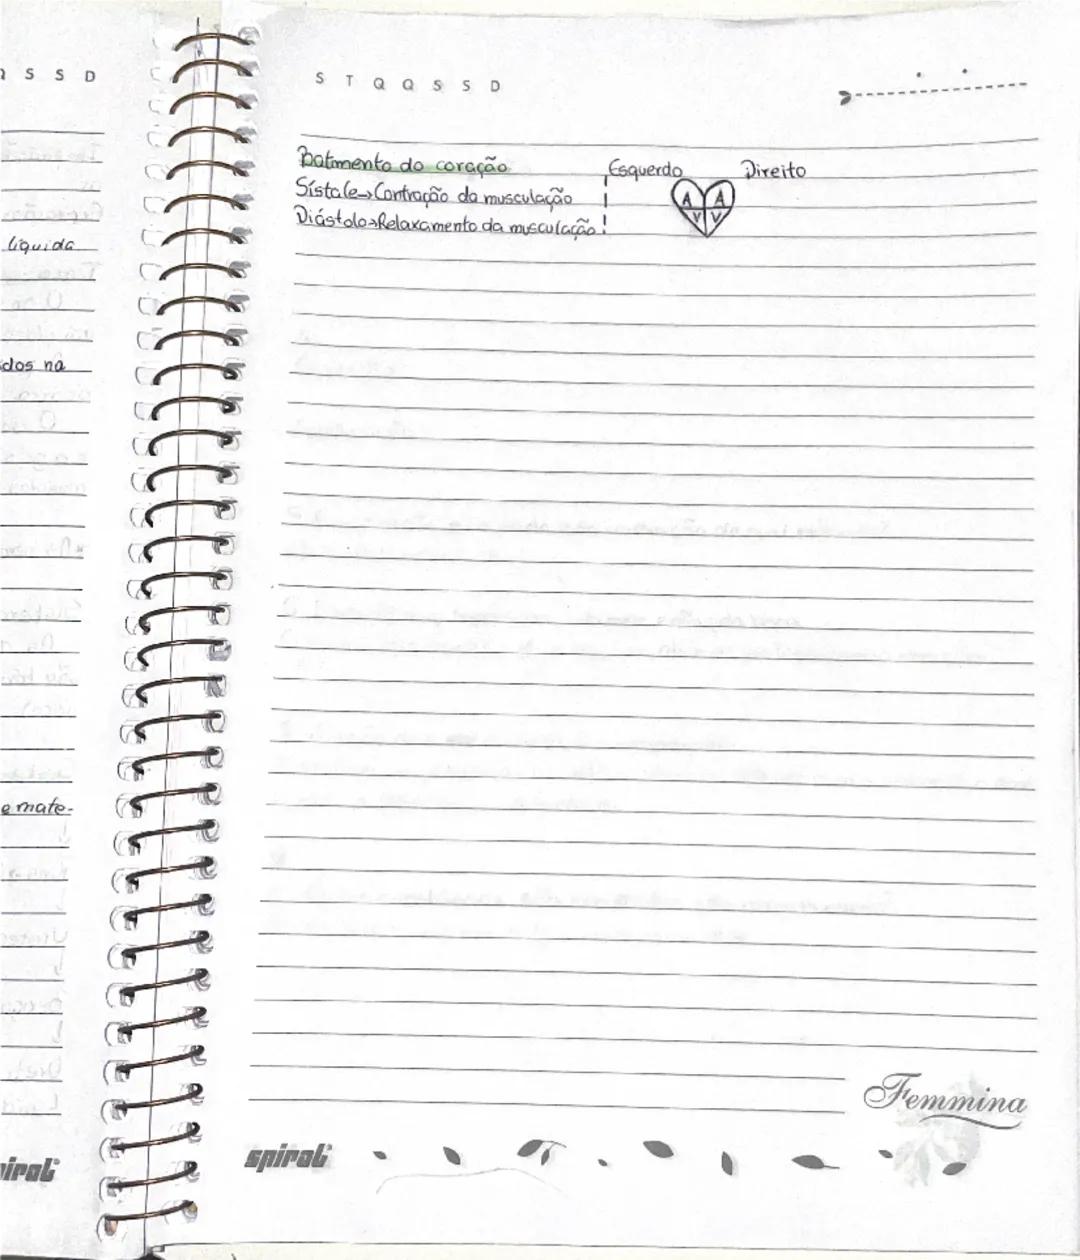 S S D
liquida
dos na
e mate-
S T Q Q S S D
Batimento do coração
Sístole→Contração da musculação
Diástolo→Relaxamento da musculação
Esquerdo Direito
A A
V V
Femmina
spiral